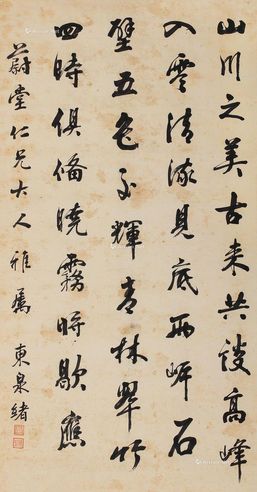 山川之美古来共谈高峰
入云清流見底两岸石
壁五色交輝青林翠竹
四時俱俻曉霧將歇應
蔚堂仁兄大人雅屬 東泉緒